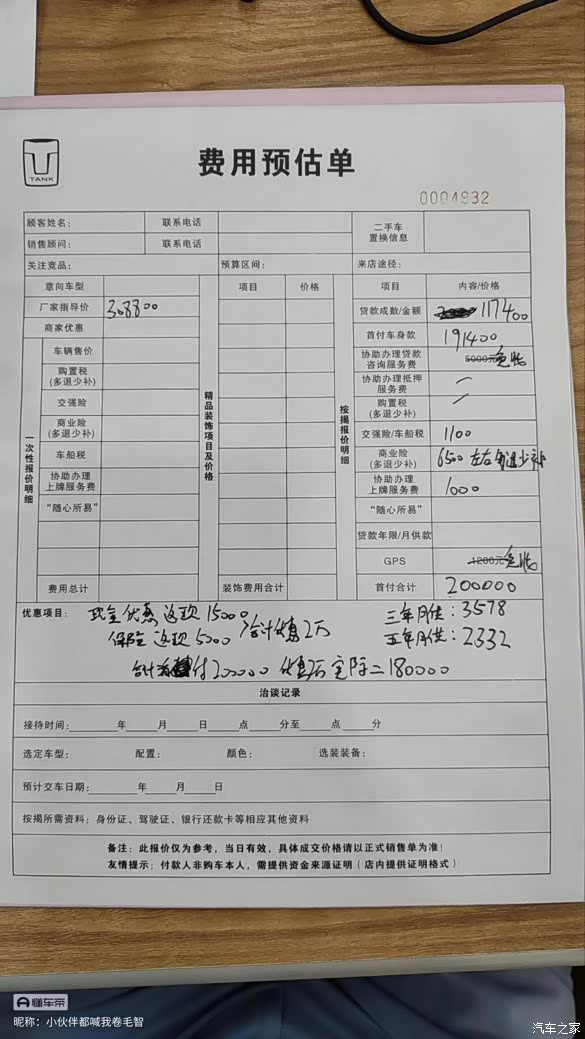 TANK
费用预估单
0004932
顾客姓名： 联系电话 二手车置换信息
销售顾问： 联系电话
关注竞品： 预算区间： 来店途径：
意向车型 项目 价格 项目 内容/价格
厂家指导价 308800 贷款成数/金额 117400
商家优惠 首付车身款 191400
一次性报价明细 精品装饰项目及价格 按揭报价明细
车辆售价 协助办理贷款咨询服务费 5000元
购置税(多退少补) 协助办理抵押服务费
交强险 购置税(多退少补)
商业险(多退少补) 交强险/车船税 1100
车船税 商业险(多退少补) 6500 左右 多退少补
协助办理上牌服务费 协助办理上牌服务费 1000
“随心所易” “随心所易”
贷款年限/月供款
GPS 1200元
费用总计 装饰费用合计 首付合计 200000
优惠项目： 现金优惠返现 15000 三年月供：3578
保险返现 5000 合计优惠2万 五年月供：2332
合计 付200000 优惠后实际=180000
洽谈记录
接待时间： 年 月 日 点 分至 点 分
选定车型： 配置： 颜色： 选装装备：
预计交车日期： 年 月 日
按揭所需资料：身份证、驾驶证、银行还款卡等相应其他资料
备注：此报价仅为参考，当日有效，具体成交价格请以正式销售单为准！
友情提示：付款人非购车本人，需提供资金来源证明（店内提供证明格式）
懂车帝
昵称：小伙伴都喊我卷毛智
汽车之家